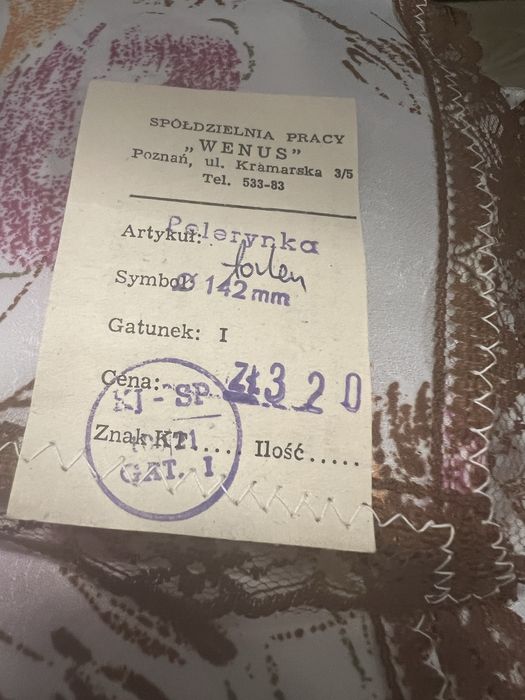 SPÓŁDZIELNIA PRACY
„WENUS”
Poznań, ul. Kramarska 3/5
Tel. 533-83
Artykuł: Pelerynka
torlen
Symbol: 142 mm
Gatunek: I
Cena: ZŁ 3 2 0
KJ - SP
Znak KT .... Ilość.....
GAT. I